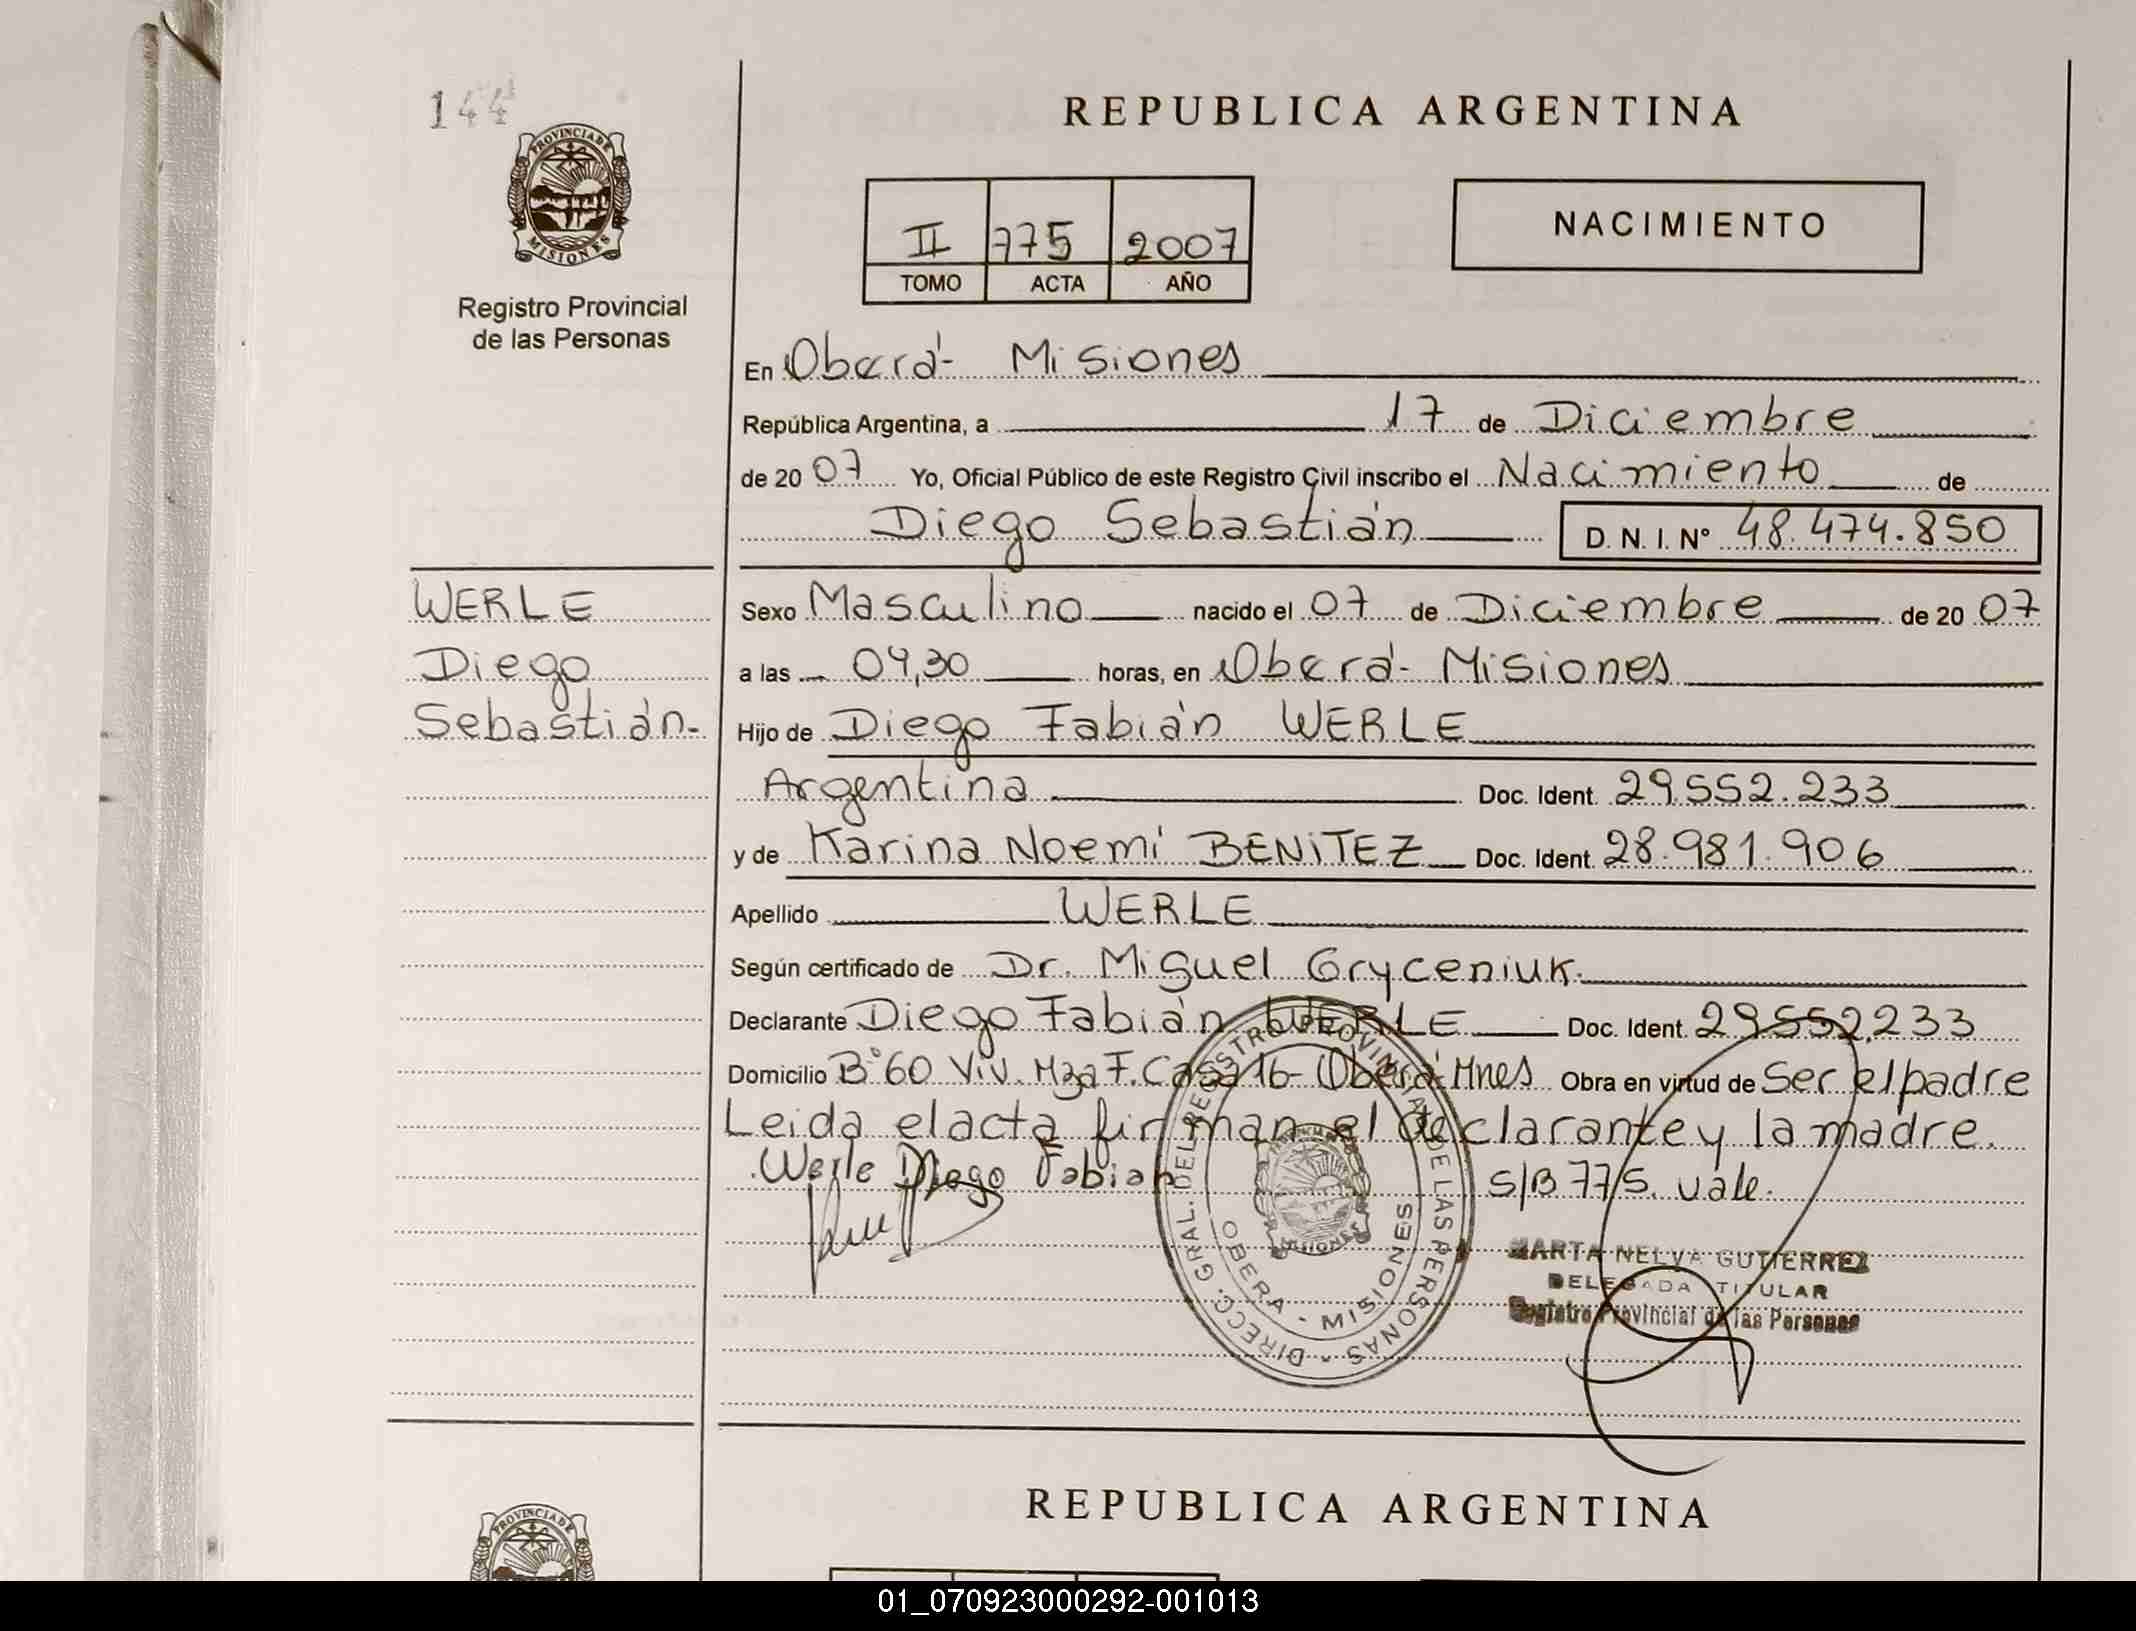 144
PROVINCIA DE
MISIONES
Registro Provincial
de las Personas
REPUBLICA ARGENTINA
II 775 2007
TOMO ACTA AÑO
NACIMIENTO
En Oberá- Misiones
República Argentina, a 17 de Diciembre
de 20 07 Yo, Oficial Público de este Registro Civil inscribo el Nacimiento de
Diego Sebastián D. N. I. N° 48.474.850
WERLE
Diego
Sebastián.
Sexo Masculino nacido el 07 de Diciembre de 20 07
a las 04,30 horas, en Oberá- Misiones
Hijo de Diego Fabián WERLE
Argentina Doc. Ident. 29.552.233
y de Karina Noemí BENiTEZ Doc. Ident. 28.981.906
Apellido WERLE
Según certificado de Dr. Miguel Gryceniuk.
Declarante Diego Fabián WERLE Doc. Ident. 29.552.233
Domicilio B° 60 Viv. Mza F. Casa 16- Oberá- Mnes Obra en virtud de Ser el padre
Leida el acta firman el declarante y la madre.
Werle Diego Fabian S/B 775. vale.
DIRECC. GRAL. DEL REGISTRO PROVINCIAL DE LAS PERSONAS
OBERA - MISIONES
MISIONES
MARTA NELVA GUTIERREZ
DELEGADA TITULAR
Registro Provincial de las Personas
PROVINCIA DE
REPUBLICA ARGENTINA
01_070923000292-001013